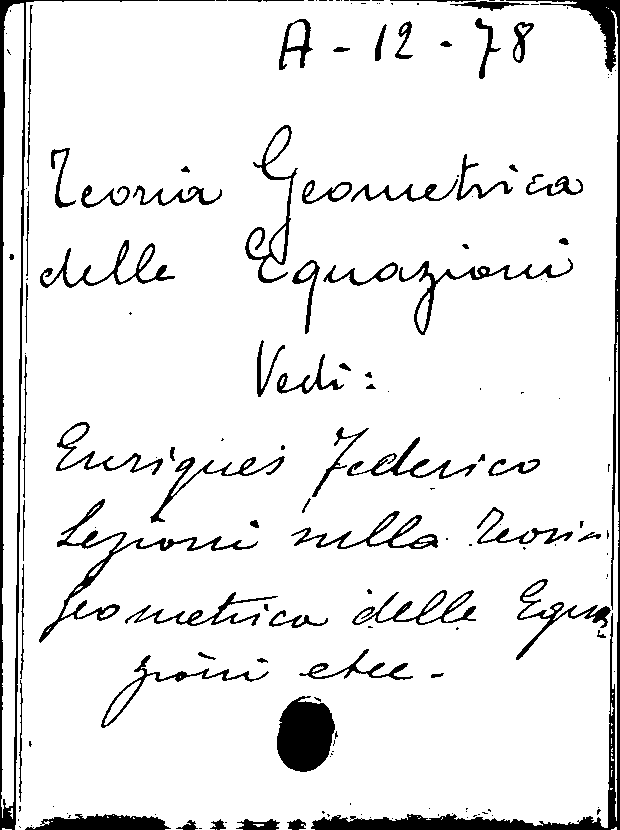 A - 12 - 78
Teoria Geometrica
delle Equazioni
Vedi:
Enriques Federico
Lezioni sulla Teoria
geometrica delle Equa
zioni etcc.